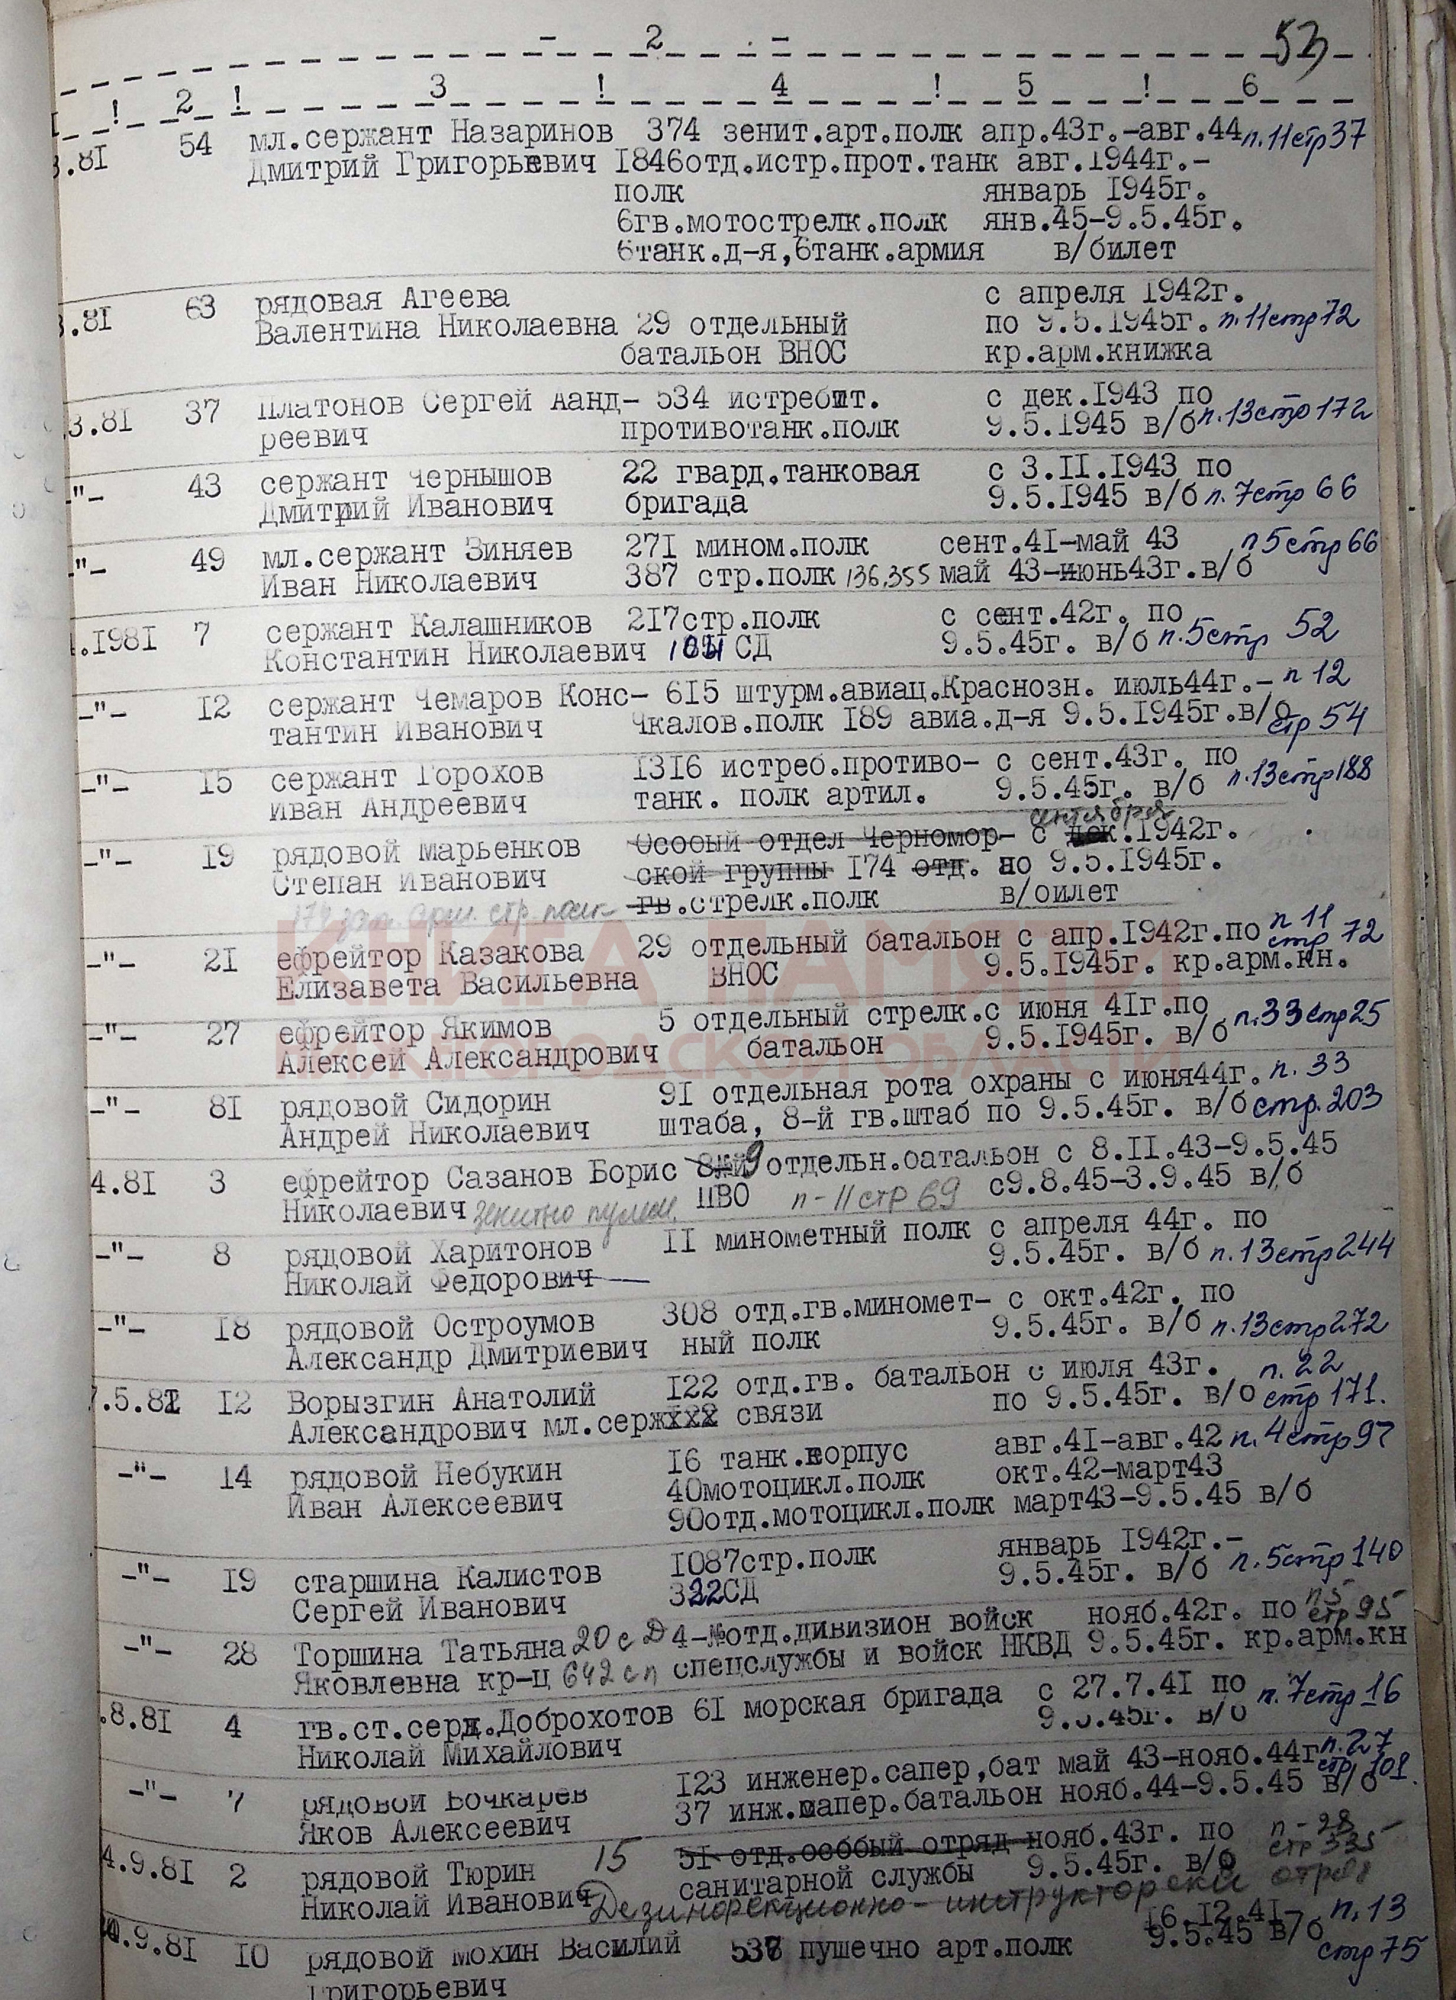 - 2 - 53
! 2 ! 3 ! 4 ! 5 ! 6
3.81 54 мл.сержант Назаринов 374 зенит.арт.полк апр.43г.-авг.44 п.11стр37
Дмитрий Григорьевич 1846отд.истр.прот.танк авг.1944г.-
полк январь 1945г.
6гв.мотострелк.полк янв.45-9.5.45г.
6танк.д-я,6танк.армия в/билет
3.81 63 рядовая Агеева с апреля 1942г.
Валентина Николаевна 29 отдельный по 9.5.1945г. п.11стр72
батальон ВНОС кр.арм.книжка
3.81 37 Платонов Сергей Аанд- 534 истребит. с дек.1943 по
реевич противотанк.полк 9.5.1945 в/б п.13стр172
-"- 43 сержант Чернышов 22 гвард.танковая с 3.II.1943 по
Дмитрий Иванович бригада 9.5.1945 в/б п.7стр66
-"- 49 мл.сержант Зиняев 271 мином.полк сент.41-май 43 п5стр66
Иван Николаевич 387 стр.полк 136,355 май 43-июнь43г.в/б
.1981 7 сержант Калашников 217стр.полк с сент.42г. по
Константин Николаевич СД 9.5.45г. в/б п.5стр 52
-"- 12 сержант Чемаров Конс- 615 штурм.авиац.Краснозн. июль44г.- п 12
тантин Иванович Чкалов.полк 189 авиа.д-я 9.5.1945г.в/б стр 54
-"- 15 сержант Горохов 1316 истреб.противо- с сент.43г. по
Иван Андреевич танк. полк артил. 9.5.45г. в/б п.13стр188
сентября
-"- 19 рядовой Марьенков Особый отдел Черномор- с дек.1942г.
Степан Иванович ской группы 174 отд. по 9.5.1945г.
174 зап. арм. стр. полк гв.стрелк.полк в/билет
КНИГА ПАМЯТИ
-"- 21 ефрейтор Казакова 29 отдельный батальон с апр.1942г.по п 11
Елизавета Васильевна ВНОС 9.5.1945г. кр.арм.кн. стр 72
-"- 27 ефрейтор Якимов 5 отдельный стрелк.с июня 41г.по
Алексей Александрович батальон 9.5.1945г. в/б п.33стр25
НИЖЕГОРОДСКОЙ ОБЛАСТИ
-"- 81 рядовой Сидорин 91 отдельная рота охраны с июня44г. п. 33
Андрей Николаевич штаба, 8-й гв.штаб по 9.5.45г. в/б стр.203
4.81 3 ефрейтор Сазанов Борис 9 отдельн.батальон с 8.II.43-9.5.45
Николаевич зенитно пулем. ПВО п-11стр 69 с9.8.45-3.9.45 в/б
-"- 8 рядовой Харитонов II минометный полк с апреля 44г. по
Николай Федорович 9.5.45г. в/б п.13стр244
-"- 18 рядовой Остроумов 308 отд.гв.миномет- с окт.42г. по
Александр Дмитриевич ный полк 9.5.45г. в/б п.13стр272
7.5.81 12 Ворызгин Анатолий 122 отд.гв. батальон с июля 43г. п.22
Александрович мл.сержххх связи по 9.5.45г. в/б стр171.
-"- 14 рядовой Небукин 16 танк.корпус авг.41-авг.42 п.4стр97
Иван Алексеевич 40мотоцикл.полк окт.42-март43
90отд.мотоцикл.полк март43-9.5.45 в/б
-"- 19 старшина Калистов 1087стр.полк январь 1942г.-
Сергей Иванович 322СД 9.5.45г. в/б п.5стр140
-"- 28 Торшина Татьяна 20 с Д 4-отд.дивизион войск нояб.42г. по п5 стр 95
Яковлевна кр-ц 642сп спецслужбы и войск НКВД 9.5.45г. кр.арм.кн
.8.81 4 гв.ст.серж.Доброхотов 61 морская бригада с 27.7.41 по п.7стр16
Николай Михайлович 9.5.45г. в/б
-"- 7 рядовой Бочкарев 123 инженер.сапер,бат май 43-нояб.44г п.27
Яков Алексеевич 37 инж.сапер.батальон нояб.44-9.5.45 в/б стр101.
4.9.81 2 рядовой Тюрин 15 51 отд.особый отряд нояб.43г. по п-28
Николай Иванович санитарной службы 9.5.45г. в/б стр335
Дезинфекционно-инструкторский отряд
.9.81 10 рядовой Мохин Василий пушечно арт.полк 16.12.41- п.13
Григорьевич 9.5.45 в/б стр75